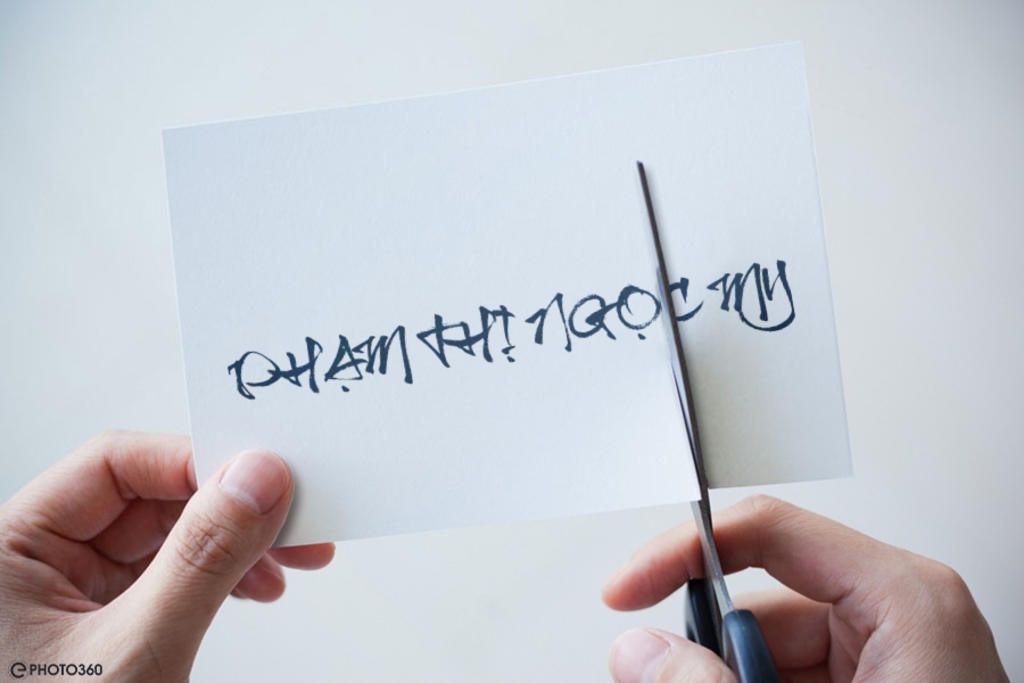 PHẠM THỊ NGỌC MY
ePHOTO360